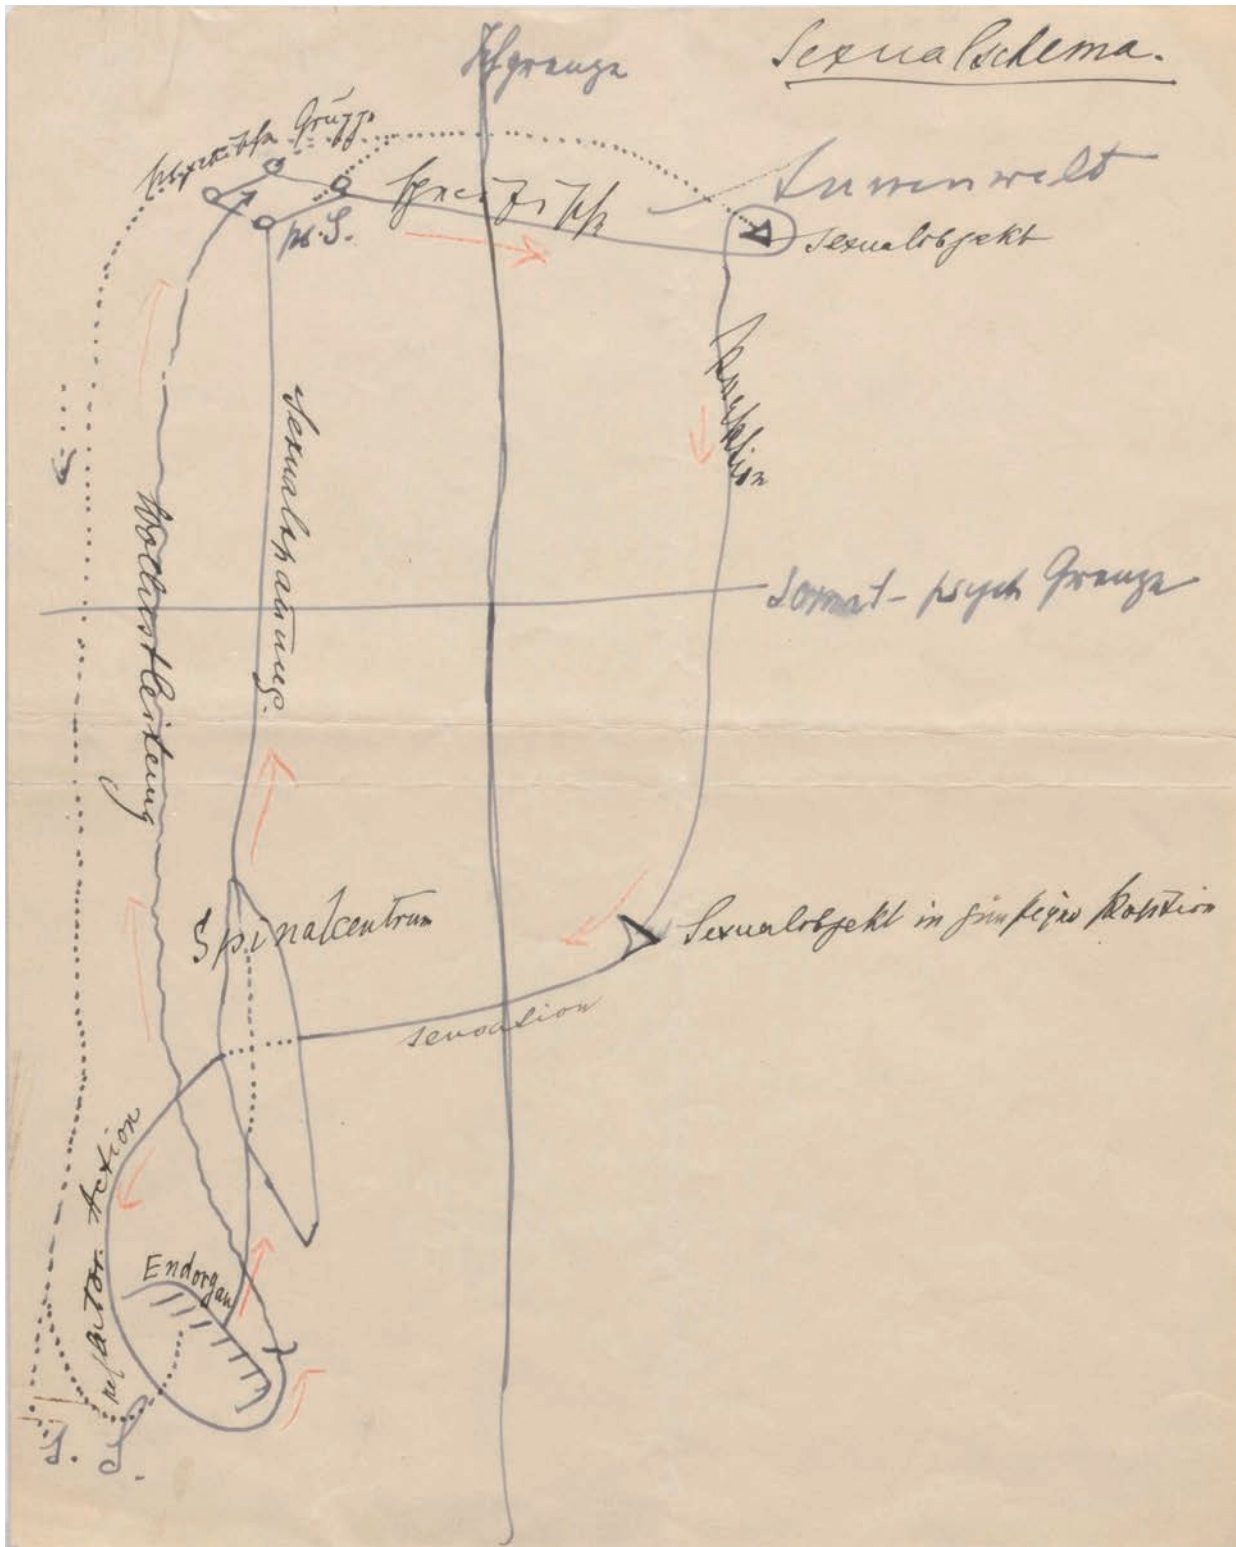 Sexualschema.
Ichgrenze
psychische Gruppe
Aussenwelt
ps. S.
Sexualobjekt
Sexualspannung.
Wollustleitung
Somat-psych Grenze
Spinalcentrum
Sexualobjekt in günstiger Position
sensation
Action
Endorgan
S.
S.